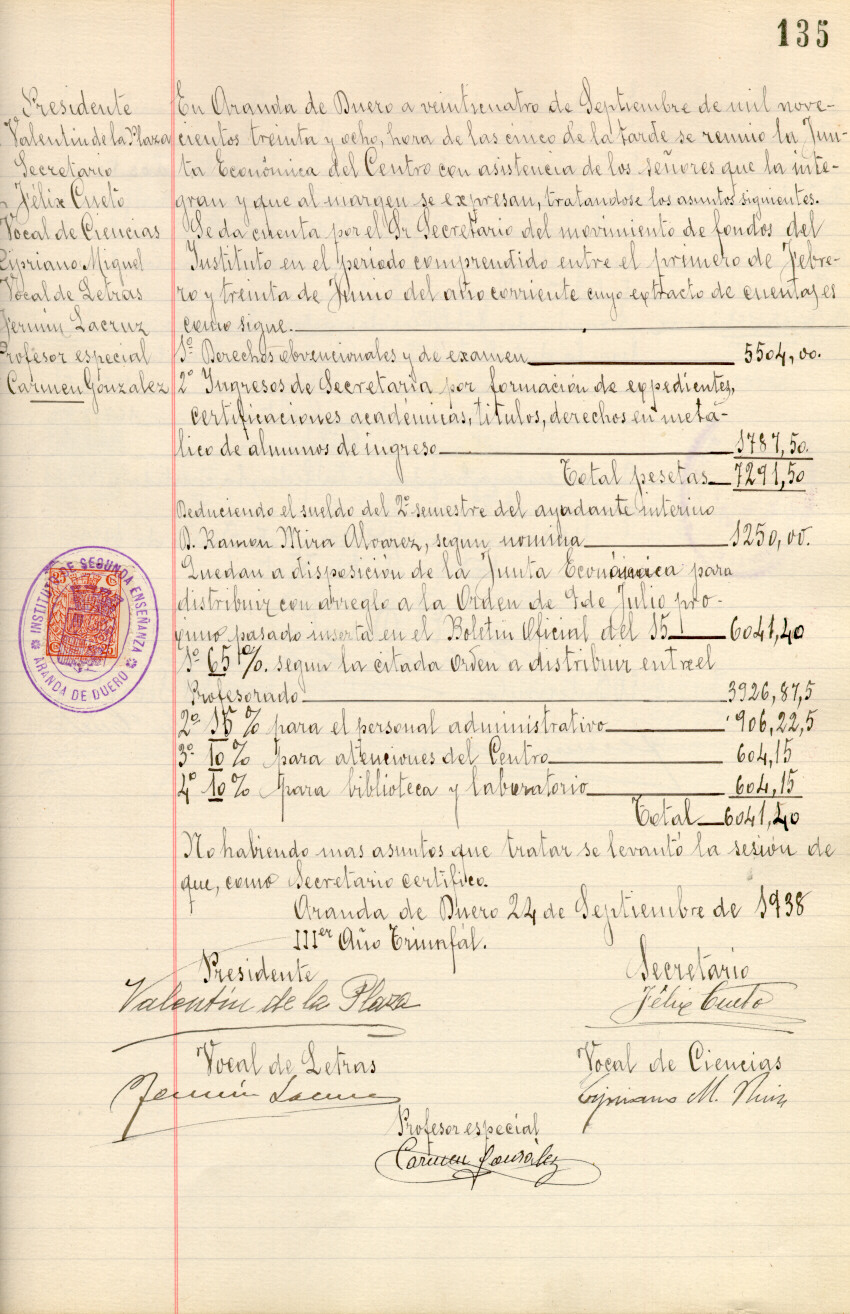 135
Presidente
Valentín de la Plaza
Secretario
Félix Cueto
Vocal de Ciencias
Cipriano Miguel
Vocal de Letras
Fermín Lacruz
Profesor especial
Carmen González
En Aranda de Duero a veinticuatro de Septiembre de mil nove-
cientos treinta y ocho, hora de las cinco de la tarde se reunio la Jun-
ta Económica del Centro con asistencia de los señores que la inte-
gran y que al margen se expresan, tratandose los asuntos siguientes.
Se da cuenta por el Sr Secretario del movimiento de fondos del
Instituto en el período comprendido entre el primero de Febre-
ro y treinta de Junio del año corriente cuyo extracto de cuentas es
como sigue.
1º Derechos obvencionales y de examen 5504,00.
2º Ingresos de Secretaría por formación de expedientes,
certificaciones académicas, titulos, derechos en metá-
lico de alumnos de ingreso 1787,50.
Total pesetas 7291,50
Deduciendo el sueldo del 2º semestre del ayudante interino
D. Ramon Mira Alvarez, segun nomina 1250,00.
Quedan a disposición de la Junta Económica para
distribuir con arreglo a la Orden de 9 de Julio pro-
ximo pasado inserta en el Boletin Oficial del 15 6041,40
1º 65%. segun la citada orden a distribuir entre el
Profesorado 3926,87,5
2º 15% para el personal administrativo 906,22,5
3º 10% para atenciones del Centro 604,15
4º 10% para biblioteca y laboratorio 604,15
Total 6041,40
No habiendo mas asuntos que tratar se levantó la sesión de
que, como Secretario certifico.
Aranda de Duero 24 de Septiembre de 1938
IIIer Año Triunfál.
Presidente
Valentín de la Plaza
Secretario
Félix Cueto
Vocal de Letras
Fermín Lacruz
Vocal de Ciencias
Cipriano M.
Profesor especial
Carmen González
INSTITUTO DE SEGUNDA ENSEÑANZA
ARANDA DE DUERO